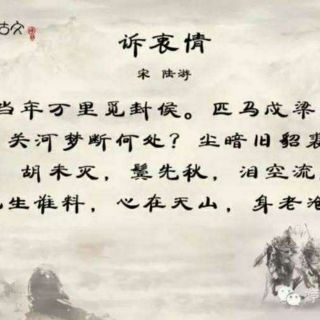 古文
诉衷情
宋 陆游
当年万里觅封侯。匹马戍梁
关河梦断何处？尘暗旧貂裘
胡未灭，鬓先秋，泪空流
生谁料，心在天山，身老沧